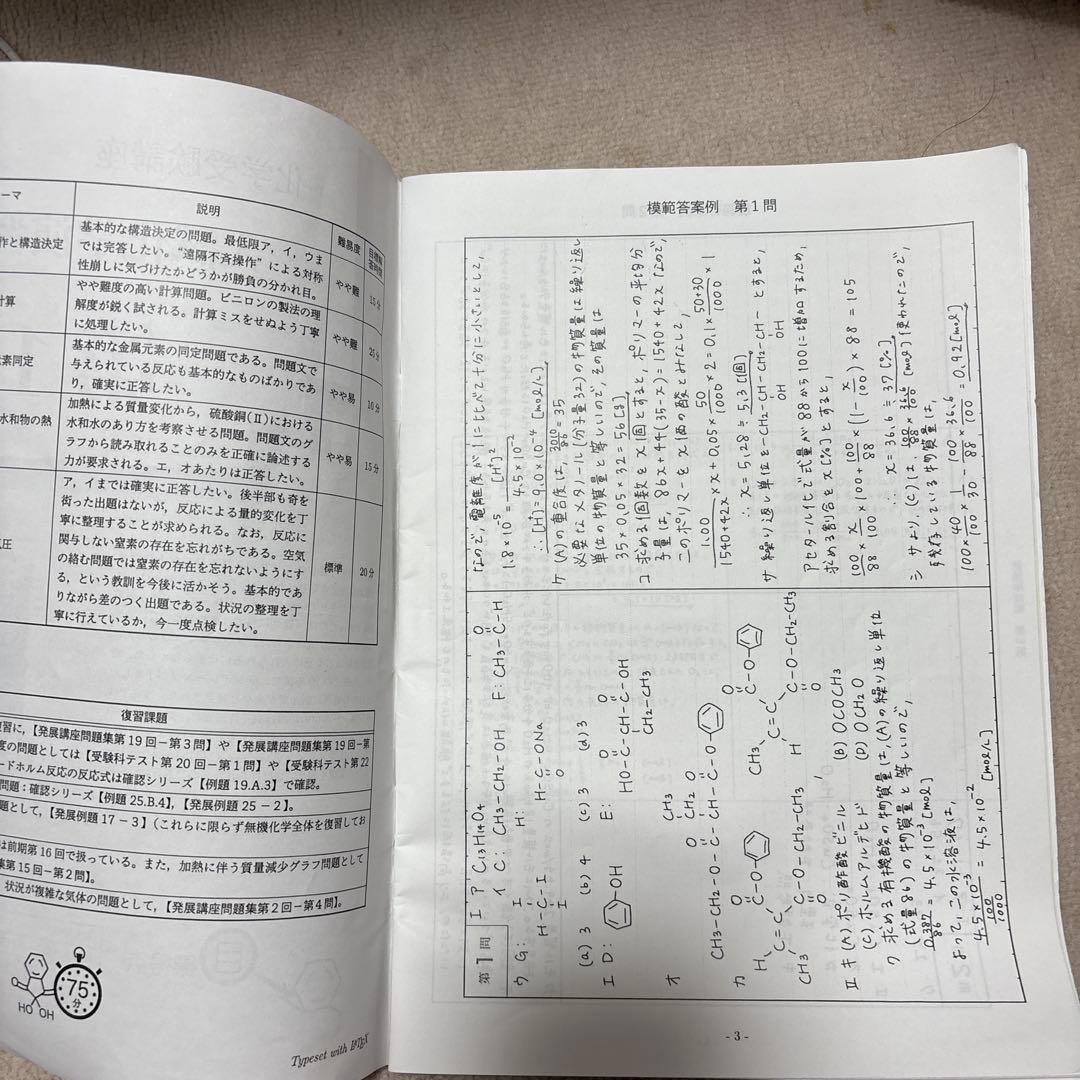 ーマ
説明
難易度
目標解答時間
作と構造決定
基本的な構造決定の問題。最低限ア，イ，ウま
では完答したい。“遠隔不斉操作”による対称
性崩しに気づけたかどうかが勝負の分かれ目。
やや難
15分
計算
やや難度の高い計算問題。ビニロンの製法の理
解度が鋭く試される。計算ミスをせぬよう丁寧
に処理したい。
やや難
25分
元素同定
基本的な金属元素の同定問題である。問題文で
与えられている反応も基本的なものばかりであ
り，確実に正答したい。
やや易
10分
水和物の熱
加熱による質量変化から，硫酸銅(Ⅱ)における
水和水のあり方を考察させる問題。問題文のグ
ラフから読み取れることのみを正確に論述する
力が要求される。エ，オあたりは正答したい。
やや易
15分
圧
ア，イまでは確実に正答したい。後半部も奇を
衒った出題はないが，反応による量的変化を丁
寧に整理することが求められる。なお，反応に
関与しない窒素の存在を忘れがちである。空気
の絡む問題では窒素の存在を忘れないようにす
る，という教訓を今後に活かそう。基本的であ
りながら差のつく出題である。状況の整理を丁
寧に行えているか，今一度点検したい。
標準
20分
復習課題
復習に，【発展講座問題集第19回－第3問】や【発展講座問題集第19回－第
度の問題としては【受験科テスト第20回－第1問】や【受験科テスト第22
ードホルム反応の反応式は確認シリーズ【例題19.A.3】で確認。
問題：確認シリーズ【例題25.B.4】，【発展例題25－2】。
題として，【発展例題17－3】（これらに限らず無機化学全体を復習してお
は前期第16回で扱っている。また，加熱に伴う質量減少グラフ問題として
集第15回－第2問】。
状況が複雑な気体の問題として，【発展講座問題集第2回－第4問】。
HO OH
75分
Typeset with LATEX
模範答案例　第1問
第1問
Ⅰ ア C13H14O4
イ C: CH3-CH2-OH, F: CH3-C-H
O
ウ G:
I
H-C-I
I
H:
H-C-ONa
O
(a) 3 (b) 4 (c) 3 (d) 3
エ D:
-OH
E:
O O
HO-C-CH-C-OH
CH2-CH3
オ
CH3
CH2
O O
CH3-CH2-O-C-CH-C-O-
カ
H C-O-
O
C=C
CH3 C-O-CH2-CH3
O
,
CH3 C-O-
O
C=C
H C-O-CH2-CH3
O
Ⅱ キ (A) ポリ酢酸ビニル (B) OCOCH3
(C) ホルムアルデヒド (D) OCH2O
ク 求める有機酸の物質量は，(A)の繰り返し単位
(式量86)の物質量と等しいので，
0.387/86 = 4.5×10^-3 [mol]
よって，この水溶液は，
4.5×10^-3 / (100/1000) = 4.5×10^-2 [mol/L]
なので，電離度が1に比べて十分に小さいとして，
1.8×10^-5 = [H+]^2 / 4.5×10^-2
∴ [H+] = 9.0×10^-4 [mol/L]
ケ (A)の重合度は，3010/86 = 35
必要なメタノール(分子量32)の物質量は繰り返し
単位の物質量と等しいので，その質量は
35×0.05×32 = 56 [g]
コ 求める個数をx個とすると，ポリマーの平均分
子量は，86x+44(35-x) = 1540+42x なので，
このポリマーをx価の酸とみなして，
1.00/(1540+42x) × x + 0.05 × 50/1000 × 2 = 0.1 × (50+30)/1000 × 1
∴ x = 5.28 ≒ 5.3 [個]
サ 繰り返し単位を -CH2-CH-CH2-CH- とすると，
OH OH
アセタール化で式量が88から100に増加するため，
求める割合をx[%]とすると，
100/88 × x/100 × 100 + 100/88 × (1 - x/100) × 88 = 105
∴ x = 36.6 ≒ 37 [%]
シ サより，(C)は 100/88 × 36.6/100 [mol] 使われたので，
残存している物質量は，
100 × 40/100 × 1/30 - 100/88 × 36.6/100 = 0.92 [mol]
- 3 -